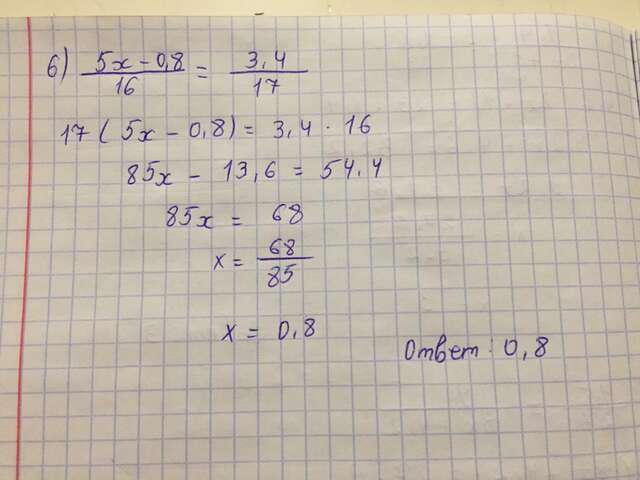 6) (5x - 0,8)/16 = 3,4/17
17 ( 5x - 0,8) = 3,4 · 16
85x - 13,6 = 54,4
85x = 68
x = 68/85
x = 0,8
Ответ: 0,8